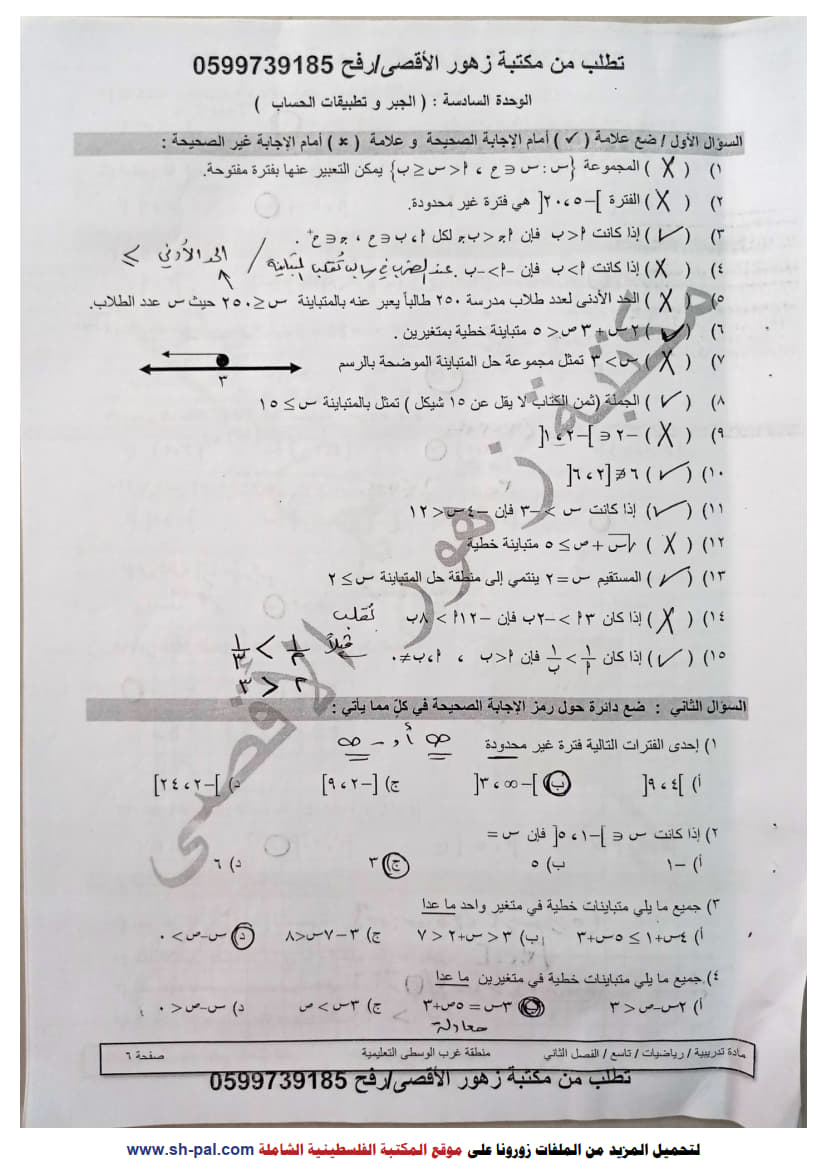 تطلب من مكتبة زهور الأقصى/رفح 0599739185
الوحدة السادسة : ( الجبر و تطبيقات الحساب )
السؤال الأول / ضع علامة ( ✓ ) أمام الإجابة الصحيحة و علامة ( × ) أمام الإجابة غير الصحيحة :
١) ( X ) المجموعة {س : س ∈ ح ، أ < س ≤ ب} يمكن التعبير عنها بفترة مفتوحة.
٢) ( X ) الفترة ]−٢،٥[ هي فترة غير محدودة.
٣) ( ✓ ) إذا كانت أ < ب فإن أجـ < ب جـ لكل أ ، ب ∈ ح ، جـ ∈ ح+ .
٤) ( X ) إذا كانت أ > ب فإن −أ > −ب عند الضرب في سالب تُقلب المتباينة / الحد الأدنى ≥
٥) ( X ) الحد الأدنى لعدد طلاب مدرسة ٢٥٠ طالباً يعبر عنه بالمتباينة س ≤ ٢٥٠ حيث س عدد الطلاب.
٦) ( ✓ ) ٢س + ٣ص < ٥ متباينة خطية بمتغيرين .
٧) ( X ) س > ٣ تمثل مجموعة حل المتباينة الموضحة بالرسم
٣
٨) ( ✓ ) الجملة (ثمن الكتاب لا يقل عن ١٥ شيكل ) تمثل بالمتباينة س ≥ ١٥
٩) ( X ) −٢ ∈ ]−٢،١[
١٠) ( ✓ ) ٦ ∉ [٢،٦[
١١) ( ✓ ) إذا كانت س > −٣ فإن −٤س < ١٢
١٢) ( X ) √س + ص ≥ ٥ متباينة خطية
١٣) ( ✓ ) المستقيم س = ٢ ينتمي إلى منطقة حل المتباينة س ≥ ٢
١٤) ( X ) إذا كان ٣أ > −٢ب فإن −١٢أ > ٨ب تُقلب
١٥) ( ✓ ) إذا كان ١/أ > ١/ب فإن أ < ب ، أ،ب ≠ ٠ مثلاً ١/٢ > ١/٣
٢ < ٣
السؤال الثاني : ضع دائرة حول رمز الإجابة الصحيحة في كلّ مما يأتي :
١) إحدى الفترات التالية فترة غير محدودة ∞ أو −∞
أ) ]٤،٩[ ب) ]−∞،٣[ ج) [−٢،٩] د) ]−٢،٢٤]
٢) إذا كانت س ∈ ]−١،٥[ فإن س =
أ) −١ ب) ٥ ج) ٣ د) ٦
٣) جميع ما يلي متباينات خطية في متغير واحد ما عدا
أ) ٤س+١ ≥ ٥س+٣ ب) ٣ < س+٢ < ٧ ج) ٣−٧س<٨ د) س−ص > ٠
٤) جميع ما يلي متباينات خطية في متغيرين ما عدا
أ) ٢س−ص < ٣ ب) ٣س = ٥ص+٣ ج) ٣س > ص د) س−ص < ٠
معادلة
مادة تدريبية / رياضيات / تاسع / الفصل الثاني منطقة غرب الوسطى التعليمية صفحة ٦
تطلب من مكتبة زهور الأقصى/رفح 0599739185
مكتبة زهور الأقصى
لتحميل المزيد من الملفات زورونا على موقع المكتبة الفلسطينية الشاملة www.sh-pal.com